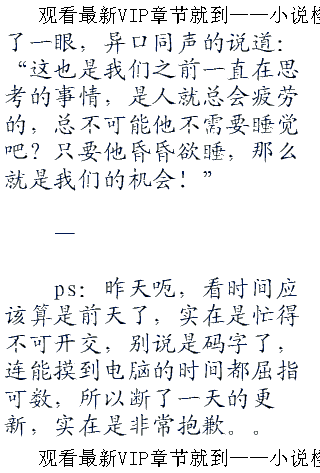 观看最新VIP章节就到——小说
了一眼，异口同声的说道：
“这也是我们之前一直在思
考的事情，是人就总会疲劳
的，总不可能他不需要睡觉
吧？只要他昏昏欲睡，那么
就是我们的机会！”
—
ps：昨天呃，看时间应
该算是前天了，实在是忙得
不可开交，别说是码字了，
连能摸到电脑的时间都屈指
可数，所以断了一天的更
新，实在是非常抱歉。。
观看最新VIP章节就到——小说